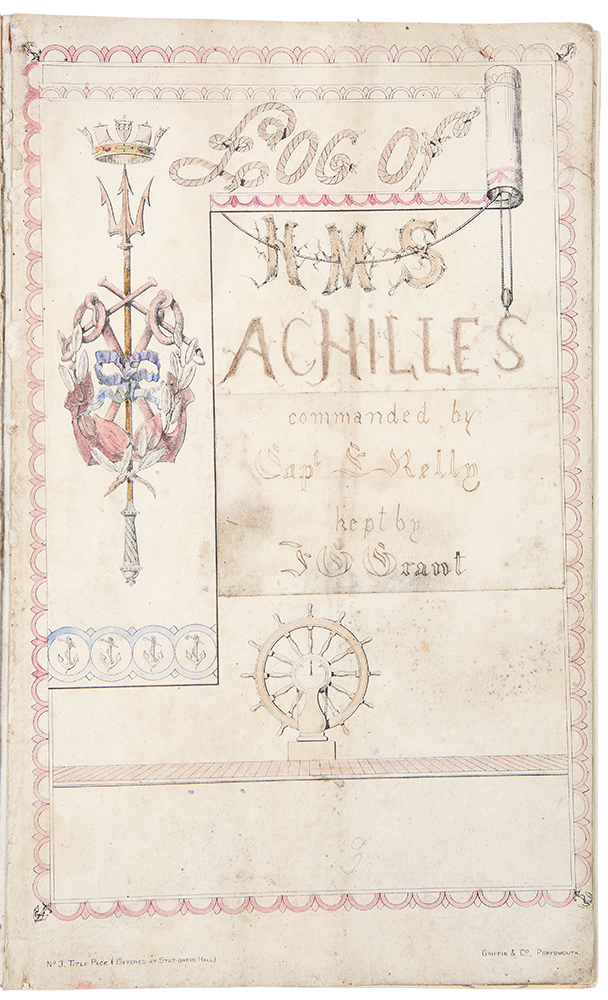 Log of
HMS
ACHILLES
commanded by
Capt E Kelly
kept by
F G Grant
Nº 3, TITLE PAGE (ENTERED AT STATIONERS HALL)
GRIFFIN & Cº, PORTSMOUTH.